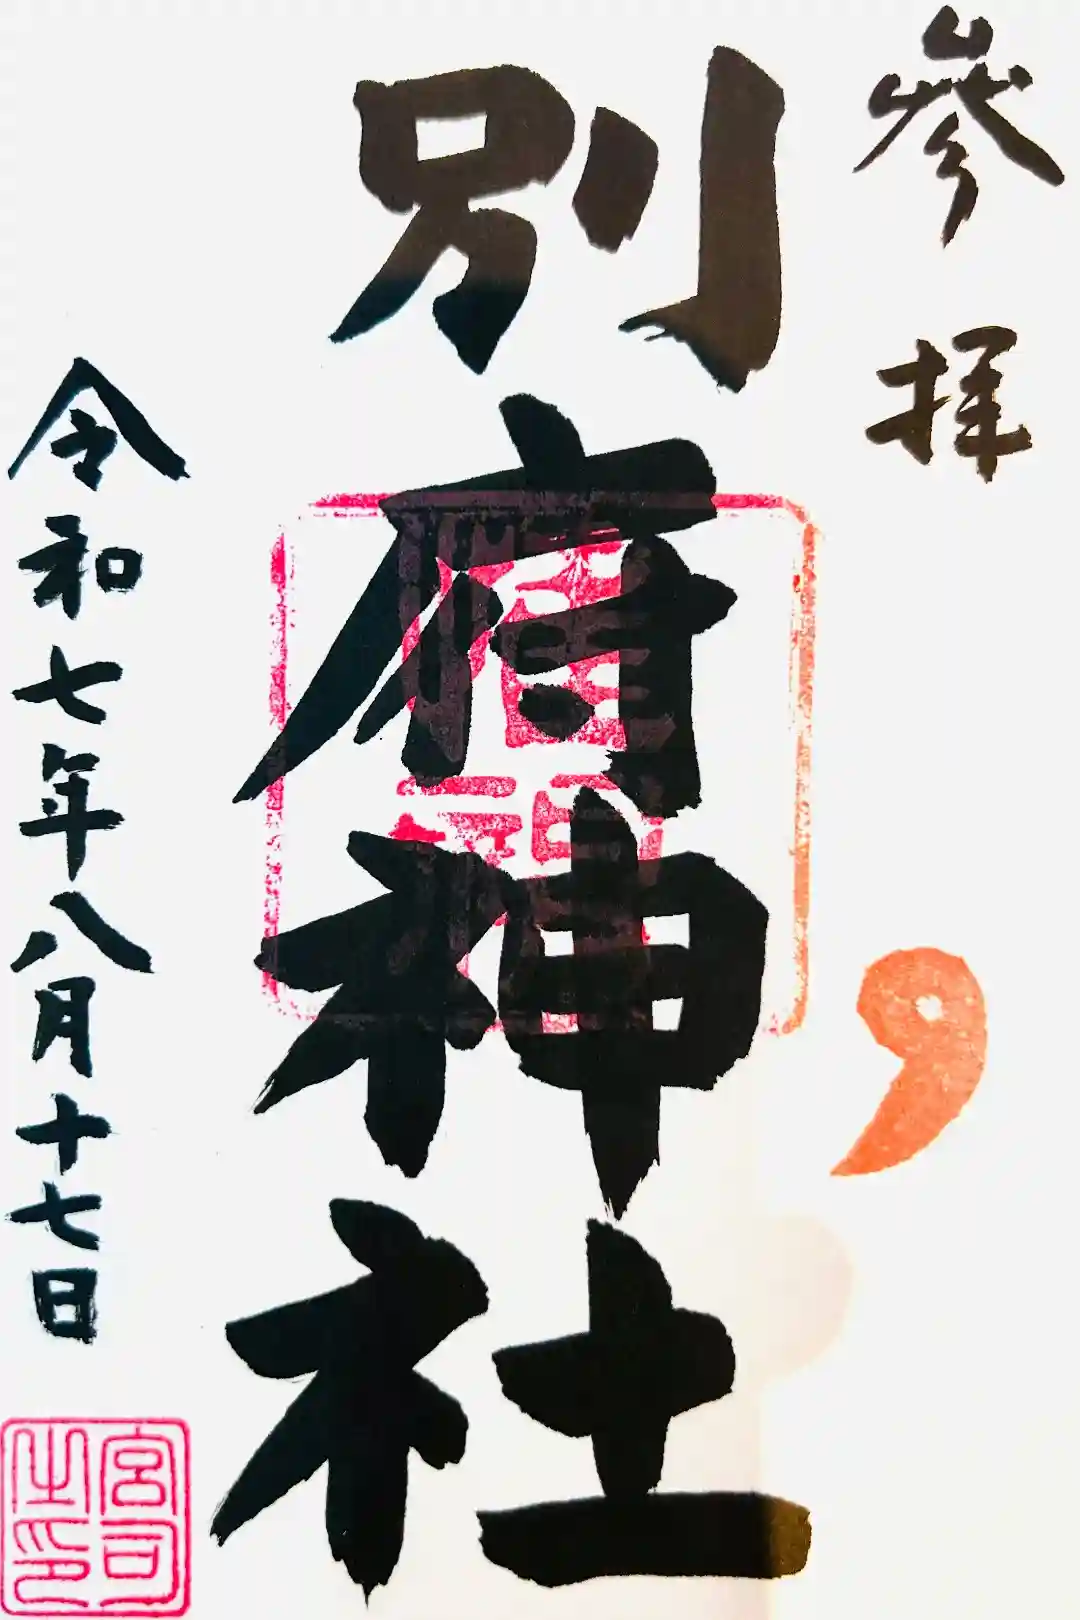 參拝
別府神社
令和七年八月十七日
宮司之印